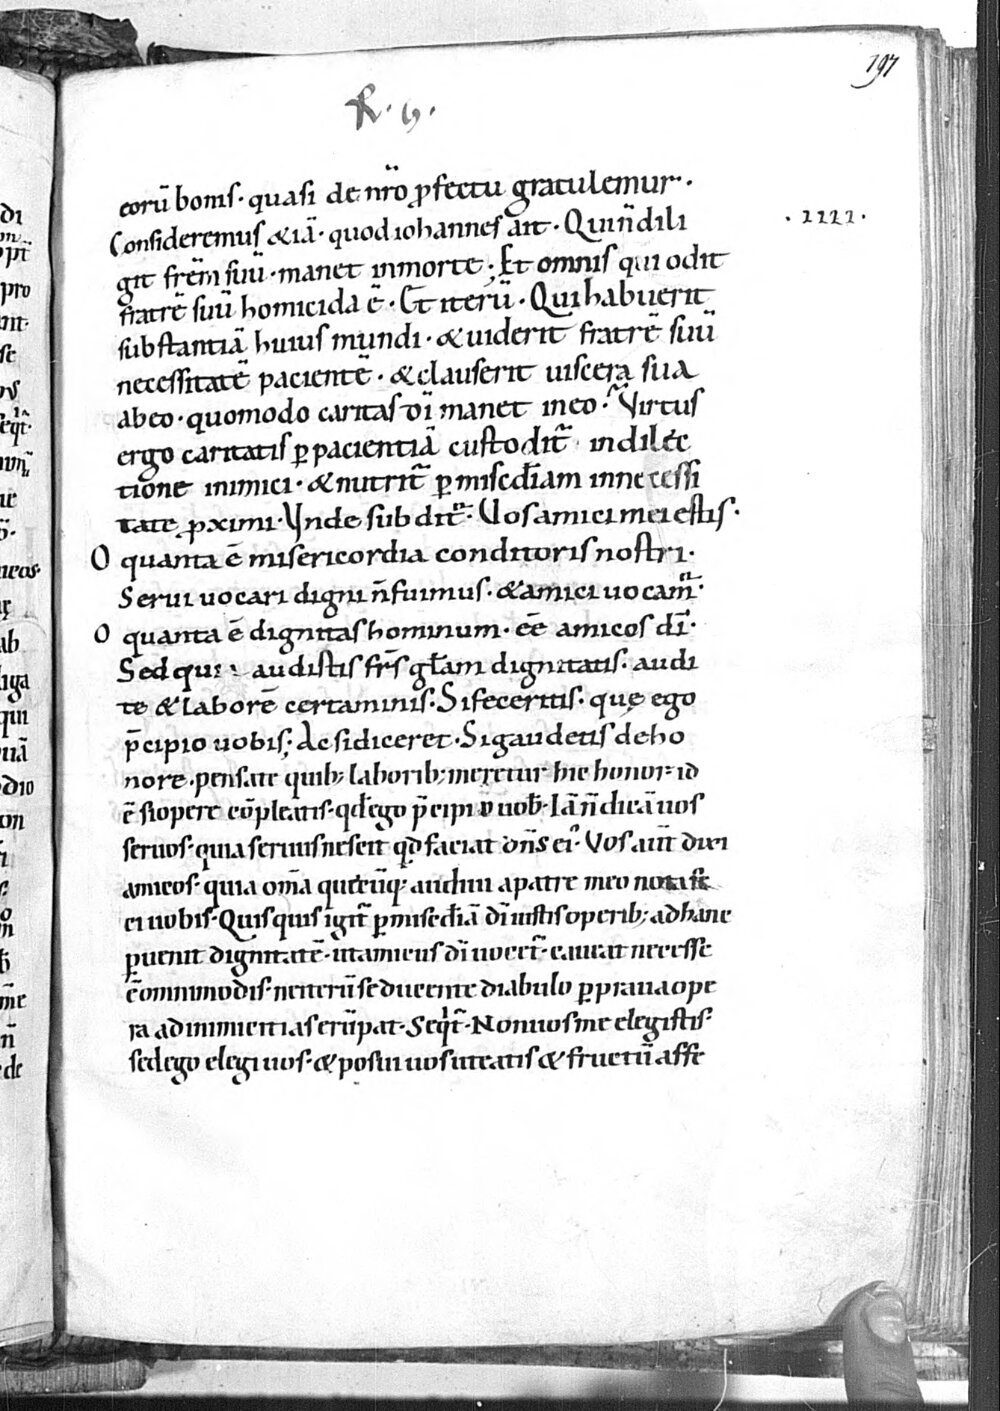 197
R. h.
eorū bonis · quasi de nr̄o ꝓfectu gratulemur.
Consideremus &iā · quod iohannes ait · Qui n̄ dili
. IIII .
git frēm suū · manet in morte ; Et omnis qui odit
fratrē suū homicida ē · Et iterū · Qui habuerit
substantiā huius mundi · & uiderit fratrē suū
necessitatē pacientē · & clauserit uiscera sua
ab eo · quomodo caritas dī manet in eo · Virtus
ergo caritatis ꝑ pacientiā custodit᷑ in dilec
tione inimici · & nutrit᷑ ꝑ misc̄diam in necessi
tate ꝓximi · Vnde subdit᷑ · Vos amici mei estis ·
O quanta ē misericordia conditoris nostri ·
Serui uocari digni n̄ fuimus · & amici uocam᷑ ·
O quanta ē dignitas hominum · eē amicos dī ·
Sed qui audistis frs̄ gl̄am dignitatis · audi
te & laborē certaminis · Si feceritis · que ego
p̄cipio uobis ; Ac si diceret · Si gaudetis de ho
nore · pensate quib; laborib; meretur hic honor · id
ē si opere cōpleatis · qd̄ ego p̄cipio uob̄ · Iā n̄ dicā uos
seruos · quia seruus nescit qd̄ faciat dn̄s ei᷒ · Vos aut̄ dixi
amicos · quia om̄a quecūq; audiui a patre meo nota fe
ci uobis · Quisquis igit᷑ ꝑ misc̄diā dī iustis operib; ad hanc
ꝑuenit dignitatē · ut amicus dī uocet᷑ · caueat necesse
ē omnimodis · ne iterū seducente diabulo ꝑ praua ope
ra ad inimicitias erūpat · Seqt᷑ · Non uos me elegistis ·
sed ego elegi uos · & posui uos ut eatis & fructū affe